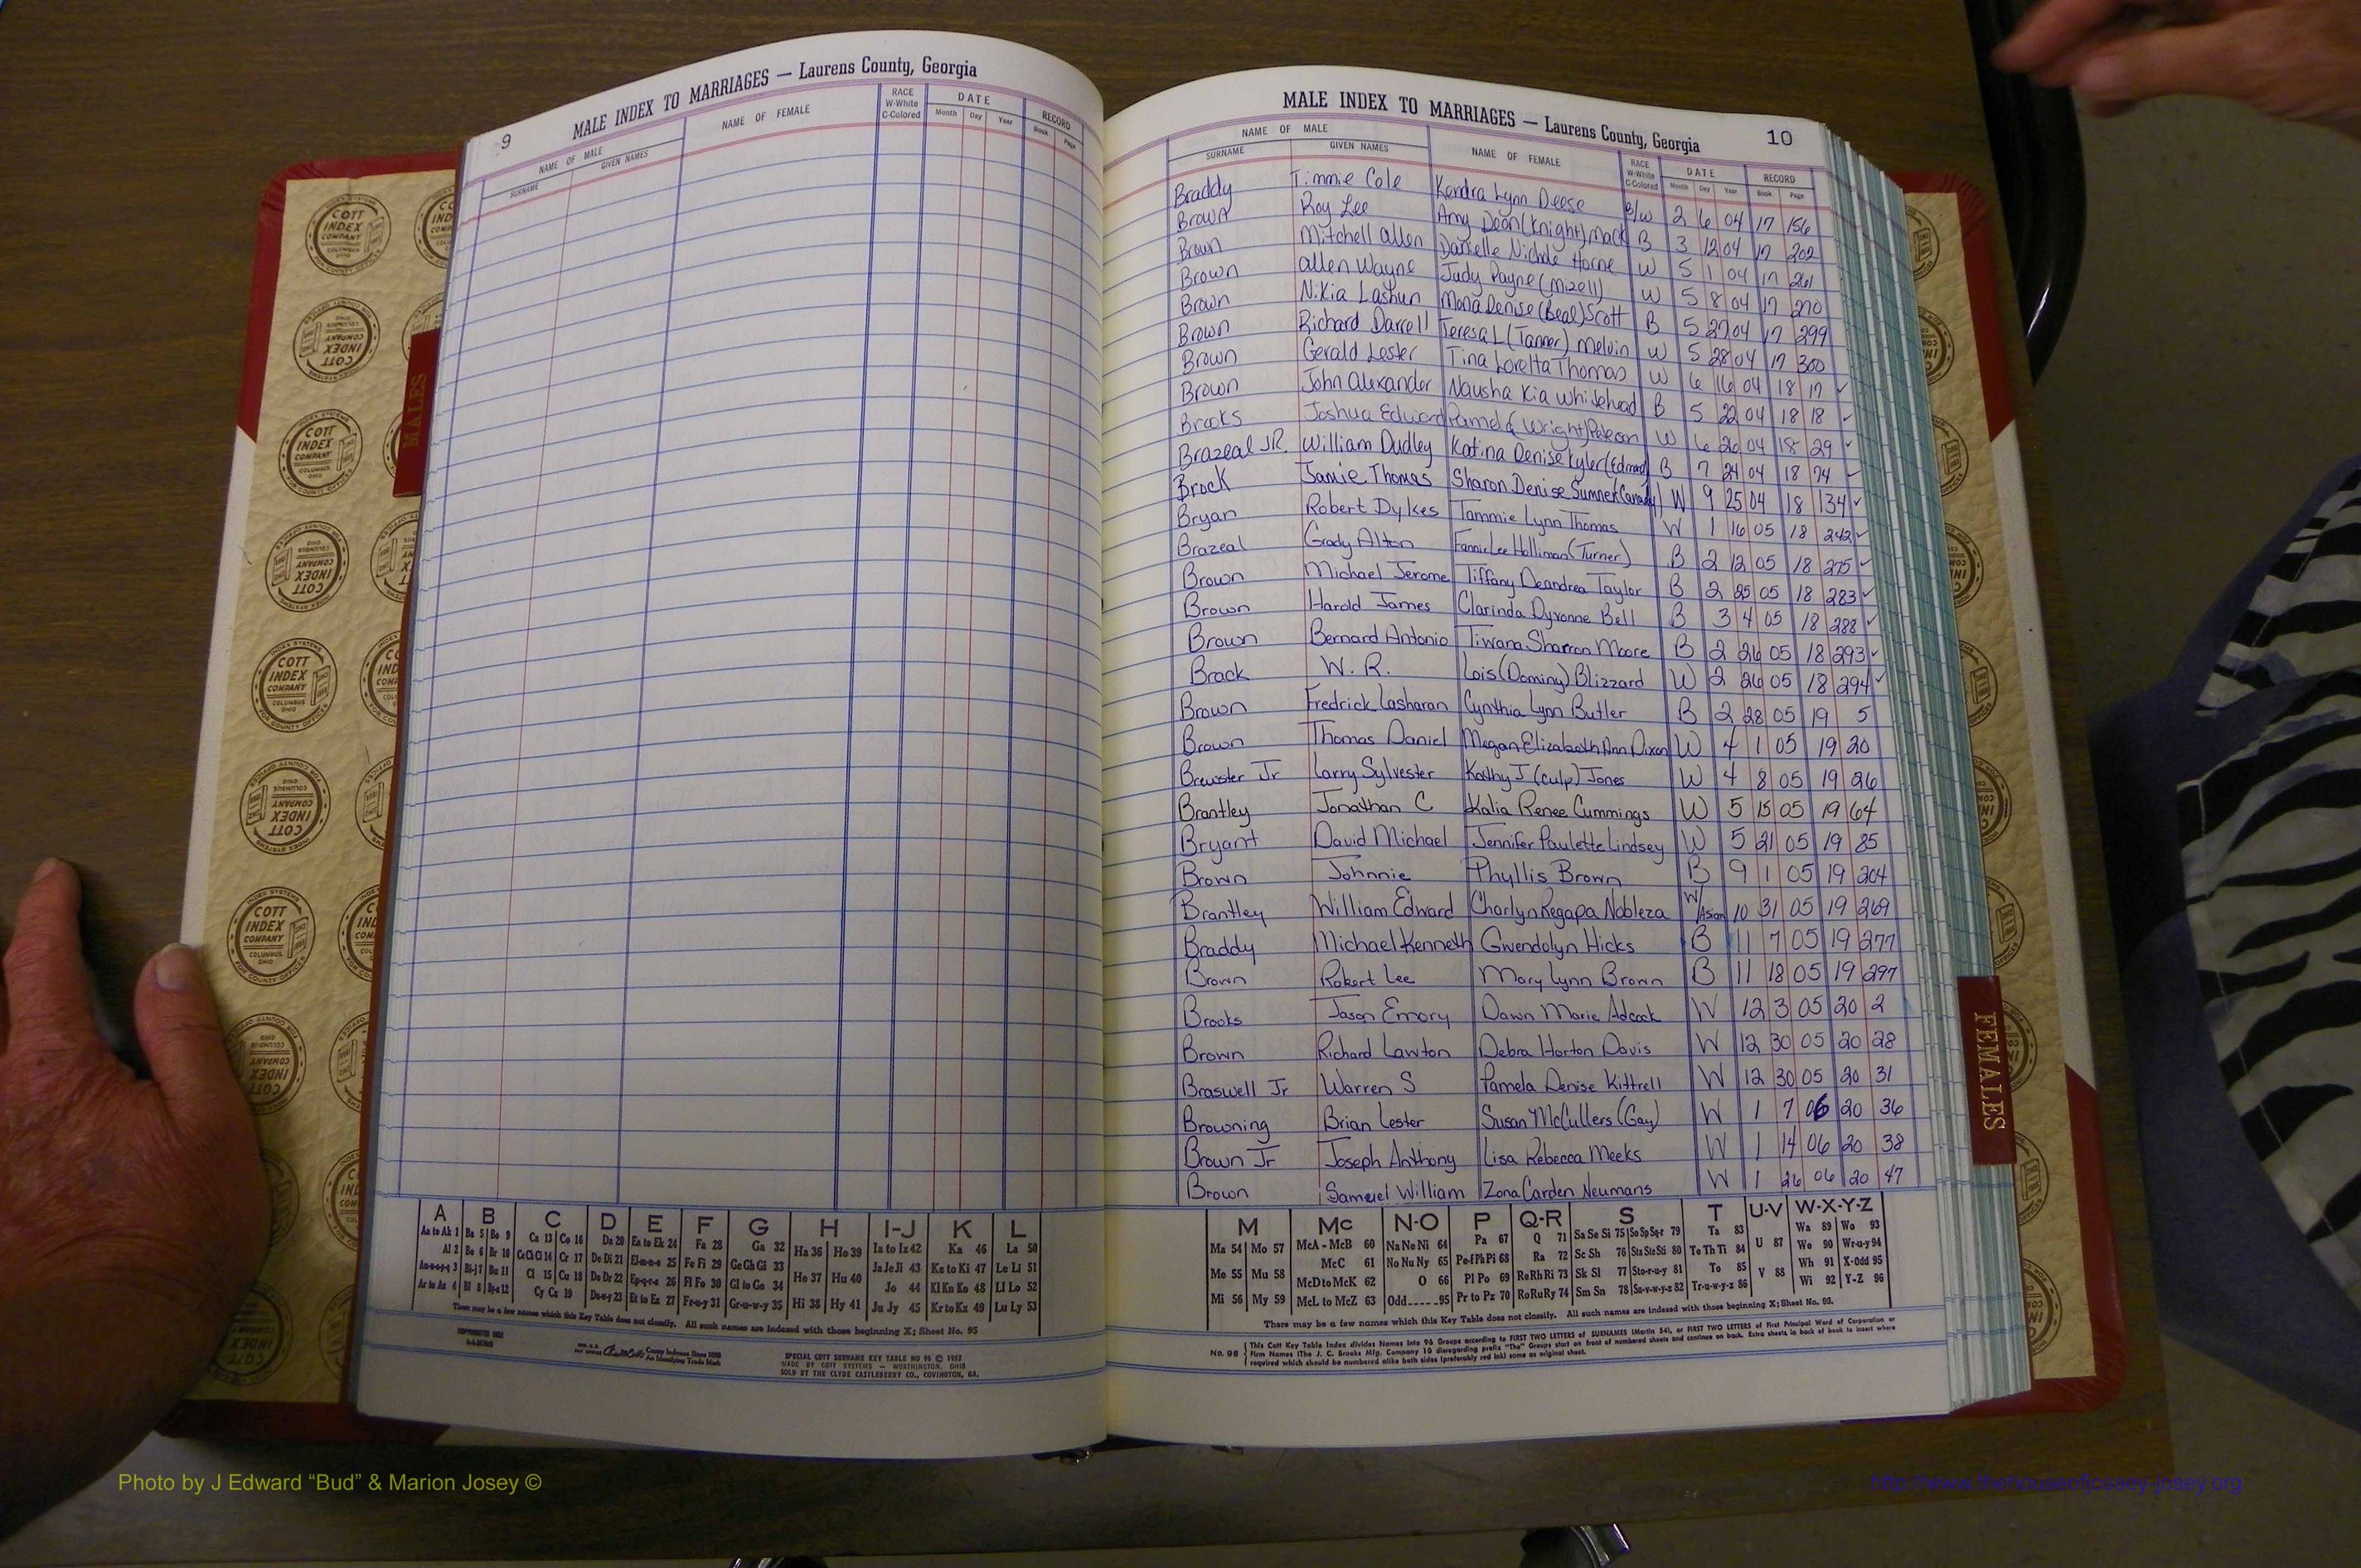 9
MALE INDEX TO MARRIAGES — Laurens County, Georgia
NAME OF MALE
SURNAME GIVEN NAMES
NAME OF FEMALE
RACE W-White C-Colored
DATE Month Day Year
RECORD Book Page
MALE INDEX TO MARRIAGES — Laurens County, Georgia 10
NAME OF MALE
SURNAME GIVEN NAMES
NAME OF FEMALE
RACE W-White C-Colored
DATE Month Day Year
RECORD Book Page
Braddy Timmie Cole Kendra Lynn Deese B/W 2 6 04 17 156
Brown Roy Lee Amy Dean (Knight) Mack B 3 12 04 17 202
Brown Mitchell Allen Danielle Nichole Horne W 5 1 04 17 261
Brown Allen Wayne Judy Payne (Mizell) W 5 8 04 17 270
Brown Nikia Lashun Mona Denise (Beal) Scott B 5 27 04 17 299
Brown Richard Darrell Teresa L (Tanner) Melvin W 5 28 04 17 300
Brown Gerald Lester Tina Loretta Thomas W 6 16 04 18 17 ✓
Brown John Alexander Nausha Kia Whitehead B 5 22 04 18 18 ✓
Brooks Joshua Edward Pamela (Wright) Peterson W 6 26 04 18 29 ✓
Brazeal JR. William Dudley Katina Denise Kyler (Edmond) B 7 24 04 18 74 ✓
Brock Jamie Thomas Sharon Denise Sumner (Canady) W 9 25 04 18 134 ✓
Bryan Robert Dykes Tammie Lynn Thomas W 1 16 05 18 242 ✓
Brazeal Grady Alton Fannie Lee Holliman (Turner) B 2 12 05 18 275 ✓
Brown Michael Jerome Tiffany Deandrea Taylor B 2 25 05 18 283 ✓
Brown Harold James Clarinda Dyvonne Bell B 3 4 05 18 288 ✓
Brown Bernard Antonio Tiwana Sharron Moore B 2 26 05 18 293 ✓
Brack W. R. Lois (Dominy) Blizzard W 2 26 05 18 294 ✓
Brown Fredrick Lasharan Cynthia Lynn Butler B 2 28 05 19 5
Brown Thomas Daniel Megan Elizabeth Ann Dixon W 4 1 05 19 20
Brewster Jr Larry Sylvester Kathy J (Culp) Jones W 4 8 05 19 26
Brantley Jonathan C Kalia Renee Cummings W 5 15 05 19 64
Bryant David Michael Jennifer Paulette Lindsey W 5 21 05 19 85
Brown Johnnie Phyllis Brown B 9 1 05 19 204
Brantley William Edward Charlyn Regapa Nobleza W/Asian 10 31 05 19 269
Braddy Michael Kenneth Gwendolyn Hicks B 11 7 05 19 277
Brown Robert Lee Mary Lynn Brown B 11 18 05 19 297
Brooks Jason Emory Dawn Marie Adcock W 12 3 05 20 2
Brown Richard Lawton Debra Horton Davis W 12 30 05 20 28
Braswell Jr Warren S Pamela Denise Kittrell W 12 30 05 20 31
Browning Brian Lester Susan McCullers (Gay) W 1 7 06 20 36
Brown Jr Joseph Anthony Lisa Rebecca Meeks W 1 14 06 20 38
Brown Samuel William Zona Carden Neumans W 1 26 06 20 47
A B C D E F G H I-J K L
Aa to Ak 1 Ba 5 Bo 9 Ca 13 Co 16 Da 20 Ea to Ek 24 Fa 28 Ga 32 Ha 36 Ho 39 Ia to Iz 42 Ka 46 La 50
Al 2 Be 6 Br 10 Ce Ch Ci 14 Cr 17 De Di 21 El-m-n-o 25 Fe Fi 29 Ge Gh Gi 33 He 37 Hu 40 Ja Je Ji 43 Ke to Ki 47 Le Li 51
Bi-j 7 Bu 11 Cl 15 Cu 18 Do Dr 22 Ep-q-r-s 26 Fl Fo 30 Gl to Go 34 Hi 38 Hy 41 Jo 44 Kl Kn Ko 48 Ll Lo 52
Ar to Az 4 Bl 8 Cy Cz 19 Du-w-y 23 Et to Ez 27 Fr-u-y 31 Gr-u-w-y 35 Ju Jy 45 Kr to Kz 49 Lu Ly 53
There may be a few names which this Key Table does not classify. All such names are indexed with those beginning X; Sheet No. 95
SPECIAL COTT SURNAME KEY TABLE NO 96 © 1952
MADE BY COTT SYSTEMS — WORTHINGTON, OHIO
SOLD BY THE CLYDE CASTLEBERRY CO., COVINGTON, GA.
M Mc N-O P Q-R S T U-V W-X-Y-Z
Ma 54 Mo 57 McA - McB 60 Na Ne Ni 64 Pa 67 Q 71 Sa Se Si 75 So Sp Sq-r 79 Ta 83 U 87 Wa 89 Wo 93
Me 55 Mu 58 McC 61 No Nu Ny 65 Pe-f Ph Pi 68 Ra 72 Sc Sh 76 Sta Ste Sti 80 Te Th Ti 84 V 88 We 90 Wr-u-y 94
McD to McK 62 O 66 Pl Po 69 Re Rh Ri 73 Sk Sl 77 Sto-r-u-y 81 To 85 Wh 91 X-Odd 95
Mi 56 My 59 McL to McZ 63 Odd 95 Pr to Pz 70 Ro Ru Ry 74 Sm Sn 78 Su-v-w-y-z 82 Tr-u-w-y-z 86 Wi 92 Y-Z 96
There may be a few names which this Key Table does not classify. All such names are indexed with those beginning X; Sheet No. 95.
No. 96 This Cott Key Table Index divides Names into 96 Groups according to FIRST TWO LETTERS of SURNAMES (Martin 54), or FIRST TWO LETTERS of First Principal Word of Corporation or
Firm Names (The J. C. Brooks Mfg. Company 10 disregarding prefix "The" Groups start on front of numbered sheets and continue on back. Extra sheets in back of book to insert where
required which should be numbered alike both sides (preferably red ink) same as original sheet.
MALES
FEMALES
COTT INDEX COMPANY
COLUMBUS OHIO
INDEX SYSTEMS
FOR COUNTY OFFICES
Photo by J Edward “Bud” & Marion Josey ©
http://www.thehouseofjossey-josey.org